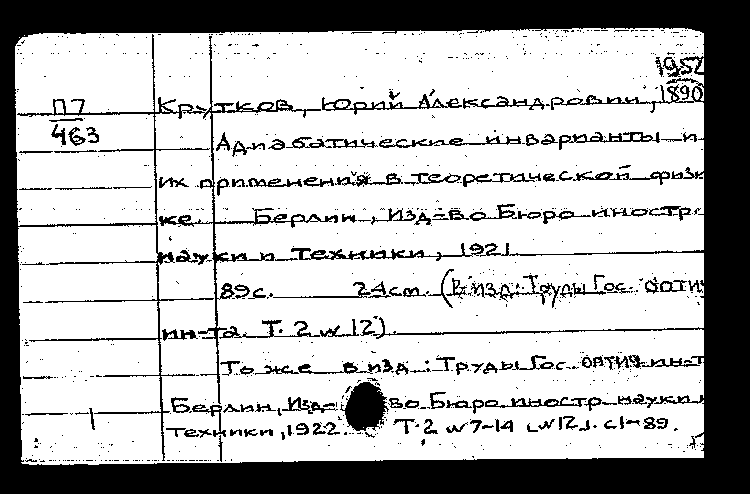 1952
П7 Крутков, Юрий Александрович, 1890
463 Адиабатические инварианты и
их применения в теоретической физи
ке. Берлин, Изд-во Бюро иностр.
науки и техники, 1921
89с. 24cm. (В изд: Труды Гос. оптич
ин-та. Т. 2 № 12).
То же в изд: Труды Гос. оптич ин-т
Берлин, Изд-во Бюро иностр. науки и
техники, 1922. Т.2 № 7-14 [№ 12]. с1-89.